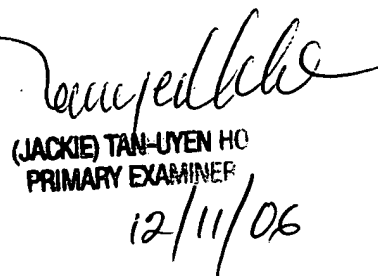 (JACKIE) TAN-UYEN HO
PRIMARY EXAMINER
12/11/06